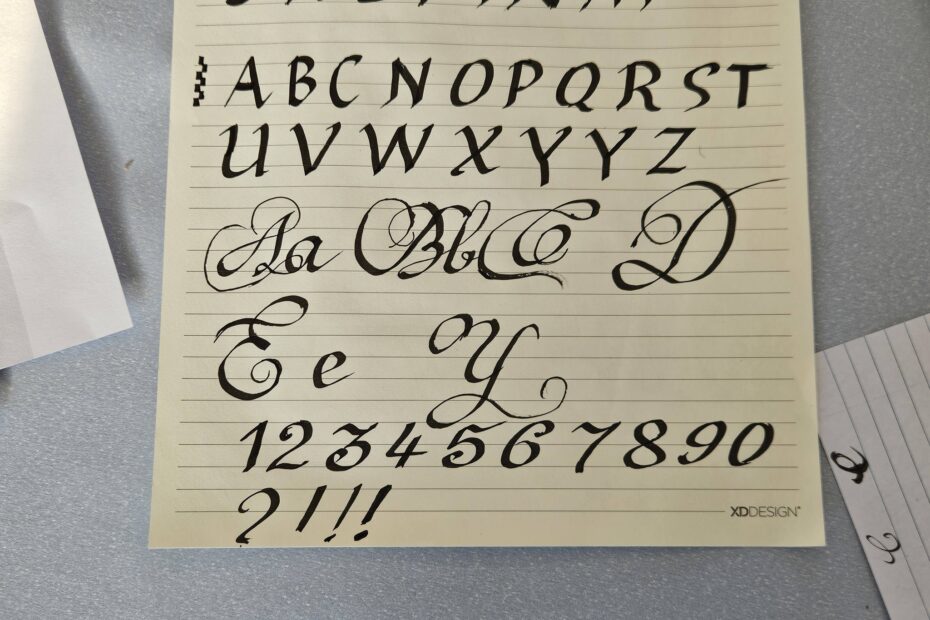 A B C N O P Q R S T
U V W X Y Y Z
Aa Bb C D
E e Y
1 2 3 4 5 6 7 8 9 0
? ! ! !
XDDESIGN®
e
e